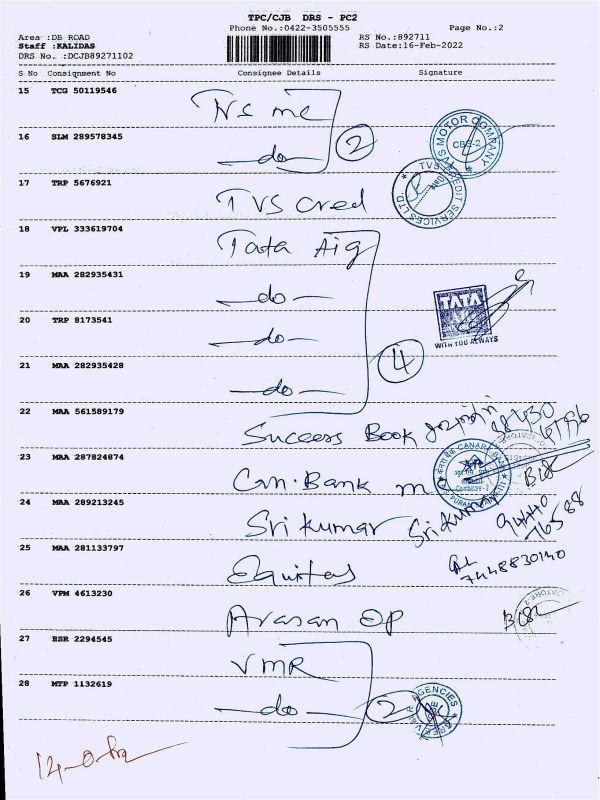 TPC/CJB DRS - PC2
Phone No.:0422-3505555 Page No.:2
Area :DB ROAD RS No.:892711
Staff :KALIDAS RS Date:16-Feb-2022
DRS No. :DCJB89271102
S No Consignment No Consignee Details Signature
15 TCG 50119546
TVS mc
16 SLM 289578345
2
do
TVS MOTOR COMPANY
CBE-2
17 TRP 5676921
TVS Cred
TVS CREDIT SERVICES LTD.
18 VPL 333619704
Tata Aig
19 MAA 282935431
do
TATA
WITH YOU ALWAYS
20 TRP 8173541
do
4
21 MAA 282935428
do
22 MAA 561589179
Success Book
23 MAA 287824874
Can. Bank
CANARA BANK
Coimbatore-2
24 MAA 289213245
Sri kumar Sri kumar
94440
76588
25 MAA 281133797
Equitas
7448830140
26 VPM 4613230
Arasan Op
27 BSR 2294545
VMR
28 MTP 1132619
do 2
AGENCIES